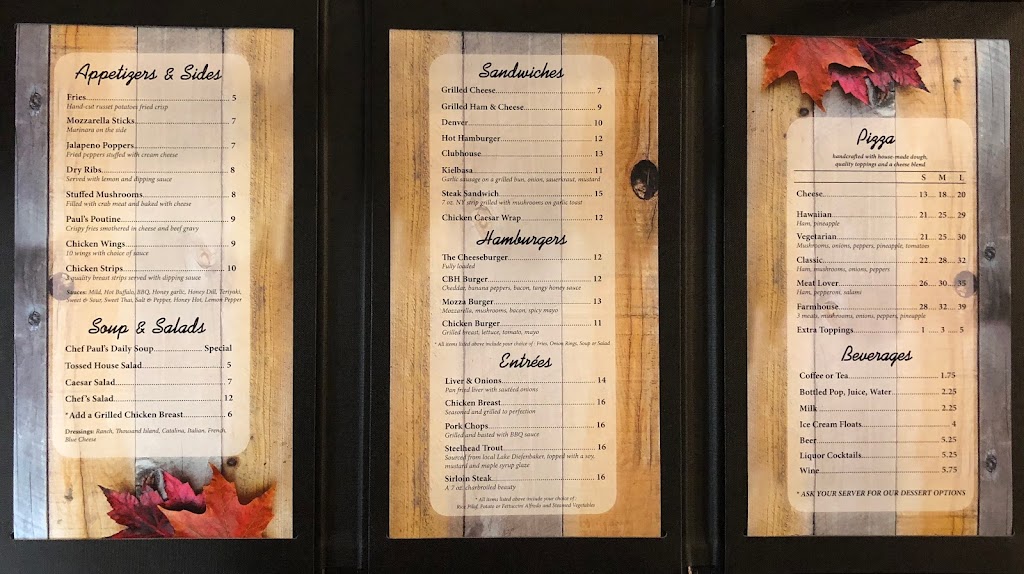 Appetizers & Sides
Fries 5
Hand-cut russet potatoes fried crisp
Mozzarella Sticks 7
Marinara on the side
Jalapeno Poppers 7
Fried peppers stuffed with cream cheese
Dry Ribs 8
Served with lemon and dipping sauce
Stuffed Mushrooms 8
Filled with crab meat and baked with cheese
Paul's Poutine 9
Crispy fries smothered in cheese and beef gravy
Chicken Wings 9
10 wings with choice of sauce
Chicken Strips 10
quality breast strips served with dipping sauce
Sauces: Mild, Hot Buffalo, BBQ, Honey garlic, Honey Dill, Teriyaki,
Sweet & Sour, Sweet Thai, Salt & Pepper, Honey Hot, Lemon Pepper
Soup & Salads
Chef Paul's Daily Soup Special
Tossed House Salad 5
Caesar Salad 7
Chef's Salad 12
*Add a Grilled Chicken Breast 6
Dressings: Ranch, Thousand Island, Catalina, Italian, French,
Blue Cheese
Sandwiches
Grilled Cheese 7
Grilled Ham & Cheese 9
Denver 10
Hot Hamburger 12
Clubhouse 13
Kielbasa 11
Garlic sausage on a grilled bun, onion, sauerkraut, mustard
Steak Sandwich 15
7 oz. NY strip grilled with mushrooms on garlic toast
Chicken Caesar Wrap 12
Hamburgers
The Cheeseburger 12
Fully loaded
CBH Burger 12
Cheddar, banana peppers, bacon, tangy honey sauce
Mozza Burger 13
Mozzarella, mushrooms, bacon, spicy mayo
Chicken Burger 11
Grilled breast, lettuce, tomato, mayo
* All items listed above include your choice of : Fries, Onion Rings, Soup or Salad
Entrées
Liver & Onions 14
Pan fried liver with sautéed onions
Chicken Breast 16
Seasoned and grilled to perfection
Pork Chops 16
Grilled and basted with BBQ sauce
Steelhead Trout 16
Sourced from local Lake Diefenbaker, topped with a soy,
mustard and maple syrup glaze
Sirloin Steak 16
A 7 oz. charbroiled beauty
* All items listed above include your choice of :
Rice Pilaf, Potato or Fettuccini Alfredo and Steamed Vegetables
Pizza
handcrafted with house-made dough,
quality toppings and a cheese blend
S M L
Cheese 13 18 20
Hawaiian 21 25 29
Ham, pineapple
Vegetarian 21 25 30
Mushrooms, onions, peppers, pineapple, tomatoes
Classic 22 28 32
Ham, mushrooms, onions, peppers
Meat Lover 26 30 35
Ham, pepperoni, salami
Farmhouse 28 32 39
3 meats, mushrooms, onions, peppers, pineapple
Extra Toppings 1 3 5
Beverages
Coffee or Tea 1.75
Bottled Pop, Juice, Water 2.25
Milk 2.25
Ice Cream Floats 4
Beer 5.25
Liquor Cocktails 5.25
Wine 5.75
* ASK YOUR SERVER FOR OUR DESSERT OPTIONS